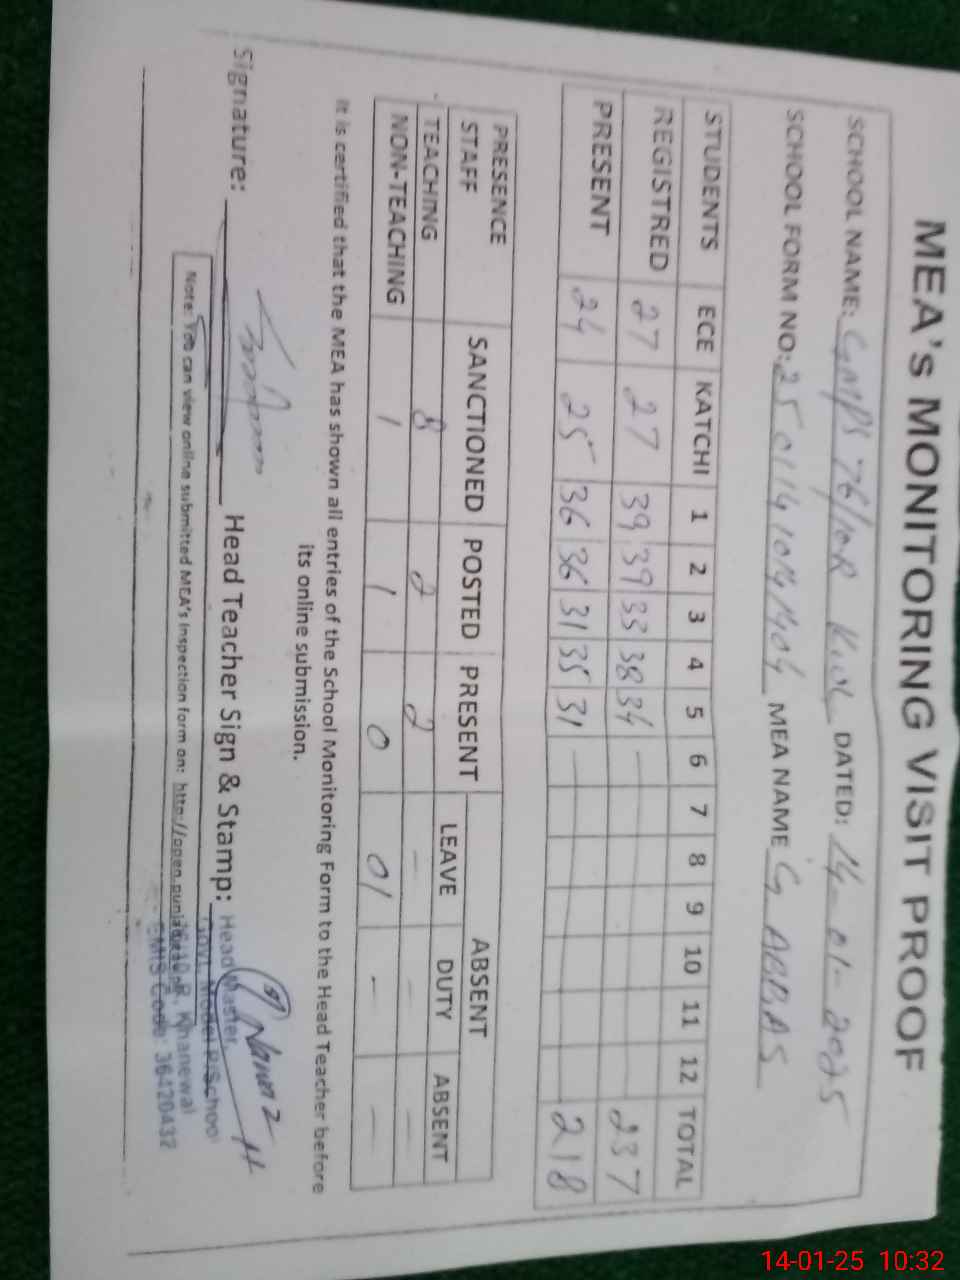 MEA's MONITORING VISIT PROOF
SCHOOL NAME: GMPS 76/10R KWL DATED: 14-01-2025
SCHOOL FORM NO: MEA NAME G ABBAS
STUDENTS ECE KATCHI 1 2 3 4 5 6 7 8 9 10 11 12 TOTAL
REGISTRED 27 27 39 39 33 38 34 — 237
PRESENT 24 25 36 36 31 35 31 — 218
PRESENCE STAFF SANCTIONED POSTED PRESENT ABSENT
LEAVE DUTY ABSENT
TEACHING 8 2 — — —
NON-TEACHING 1 1 0 01 — —
It is certified that the MEA has shown all entries of the School Monitoring Form to the Head Teacher before
its online submission.
Signature: Head Teacher Sign & Stamp:
Head Master,
Govt. Model P/School
76/10-R, Khanewal
EMIS Code: 36420432
Note: You can view online submitted MEA's Inspection form on: http://open.punjab.gov.pk
14-01-25 10:32